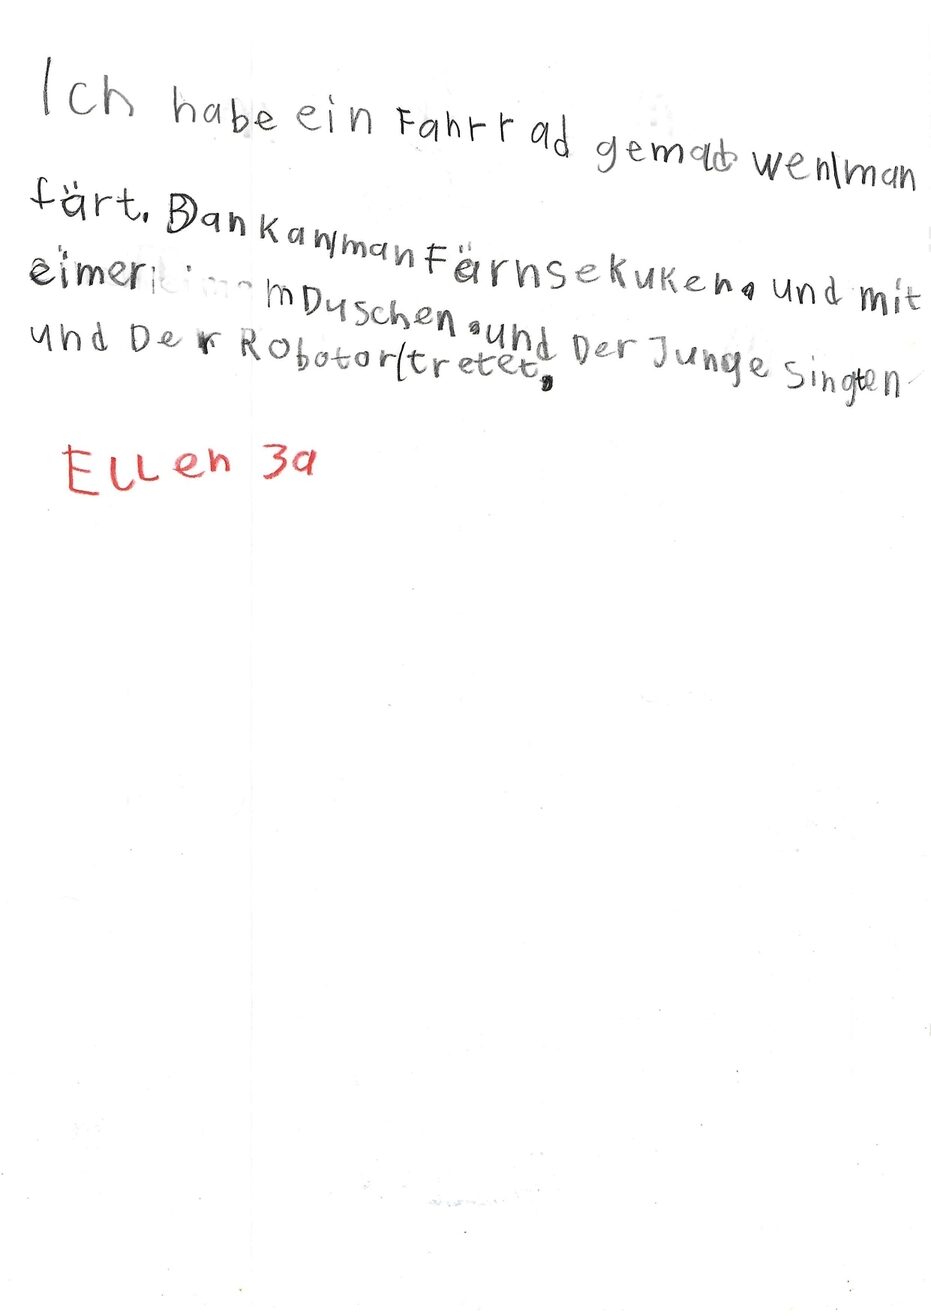 Ich habe ein Fahrrad gemacht wen/man
färt. Dan Kan/man Färnsekuken. und mit
eimer m Duschen. und Der Junge singten
und Der Robotor/tretet.
Ellen 3a